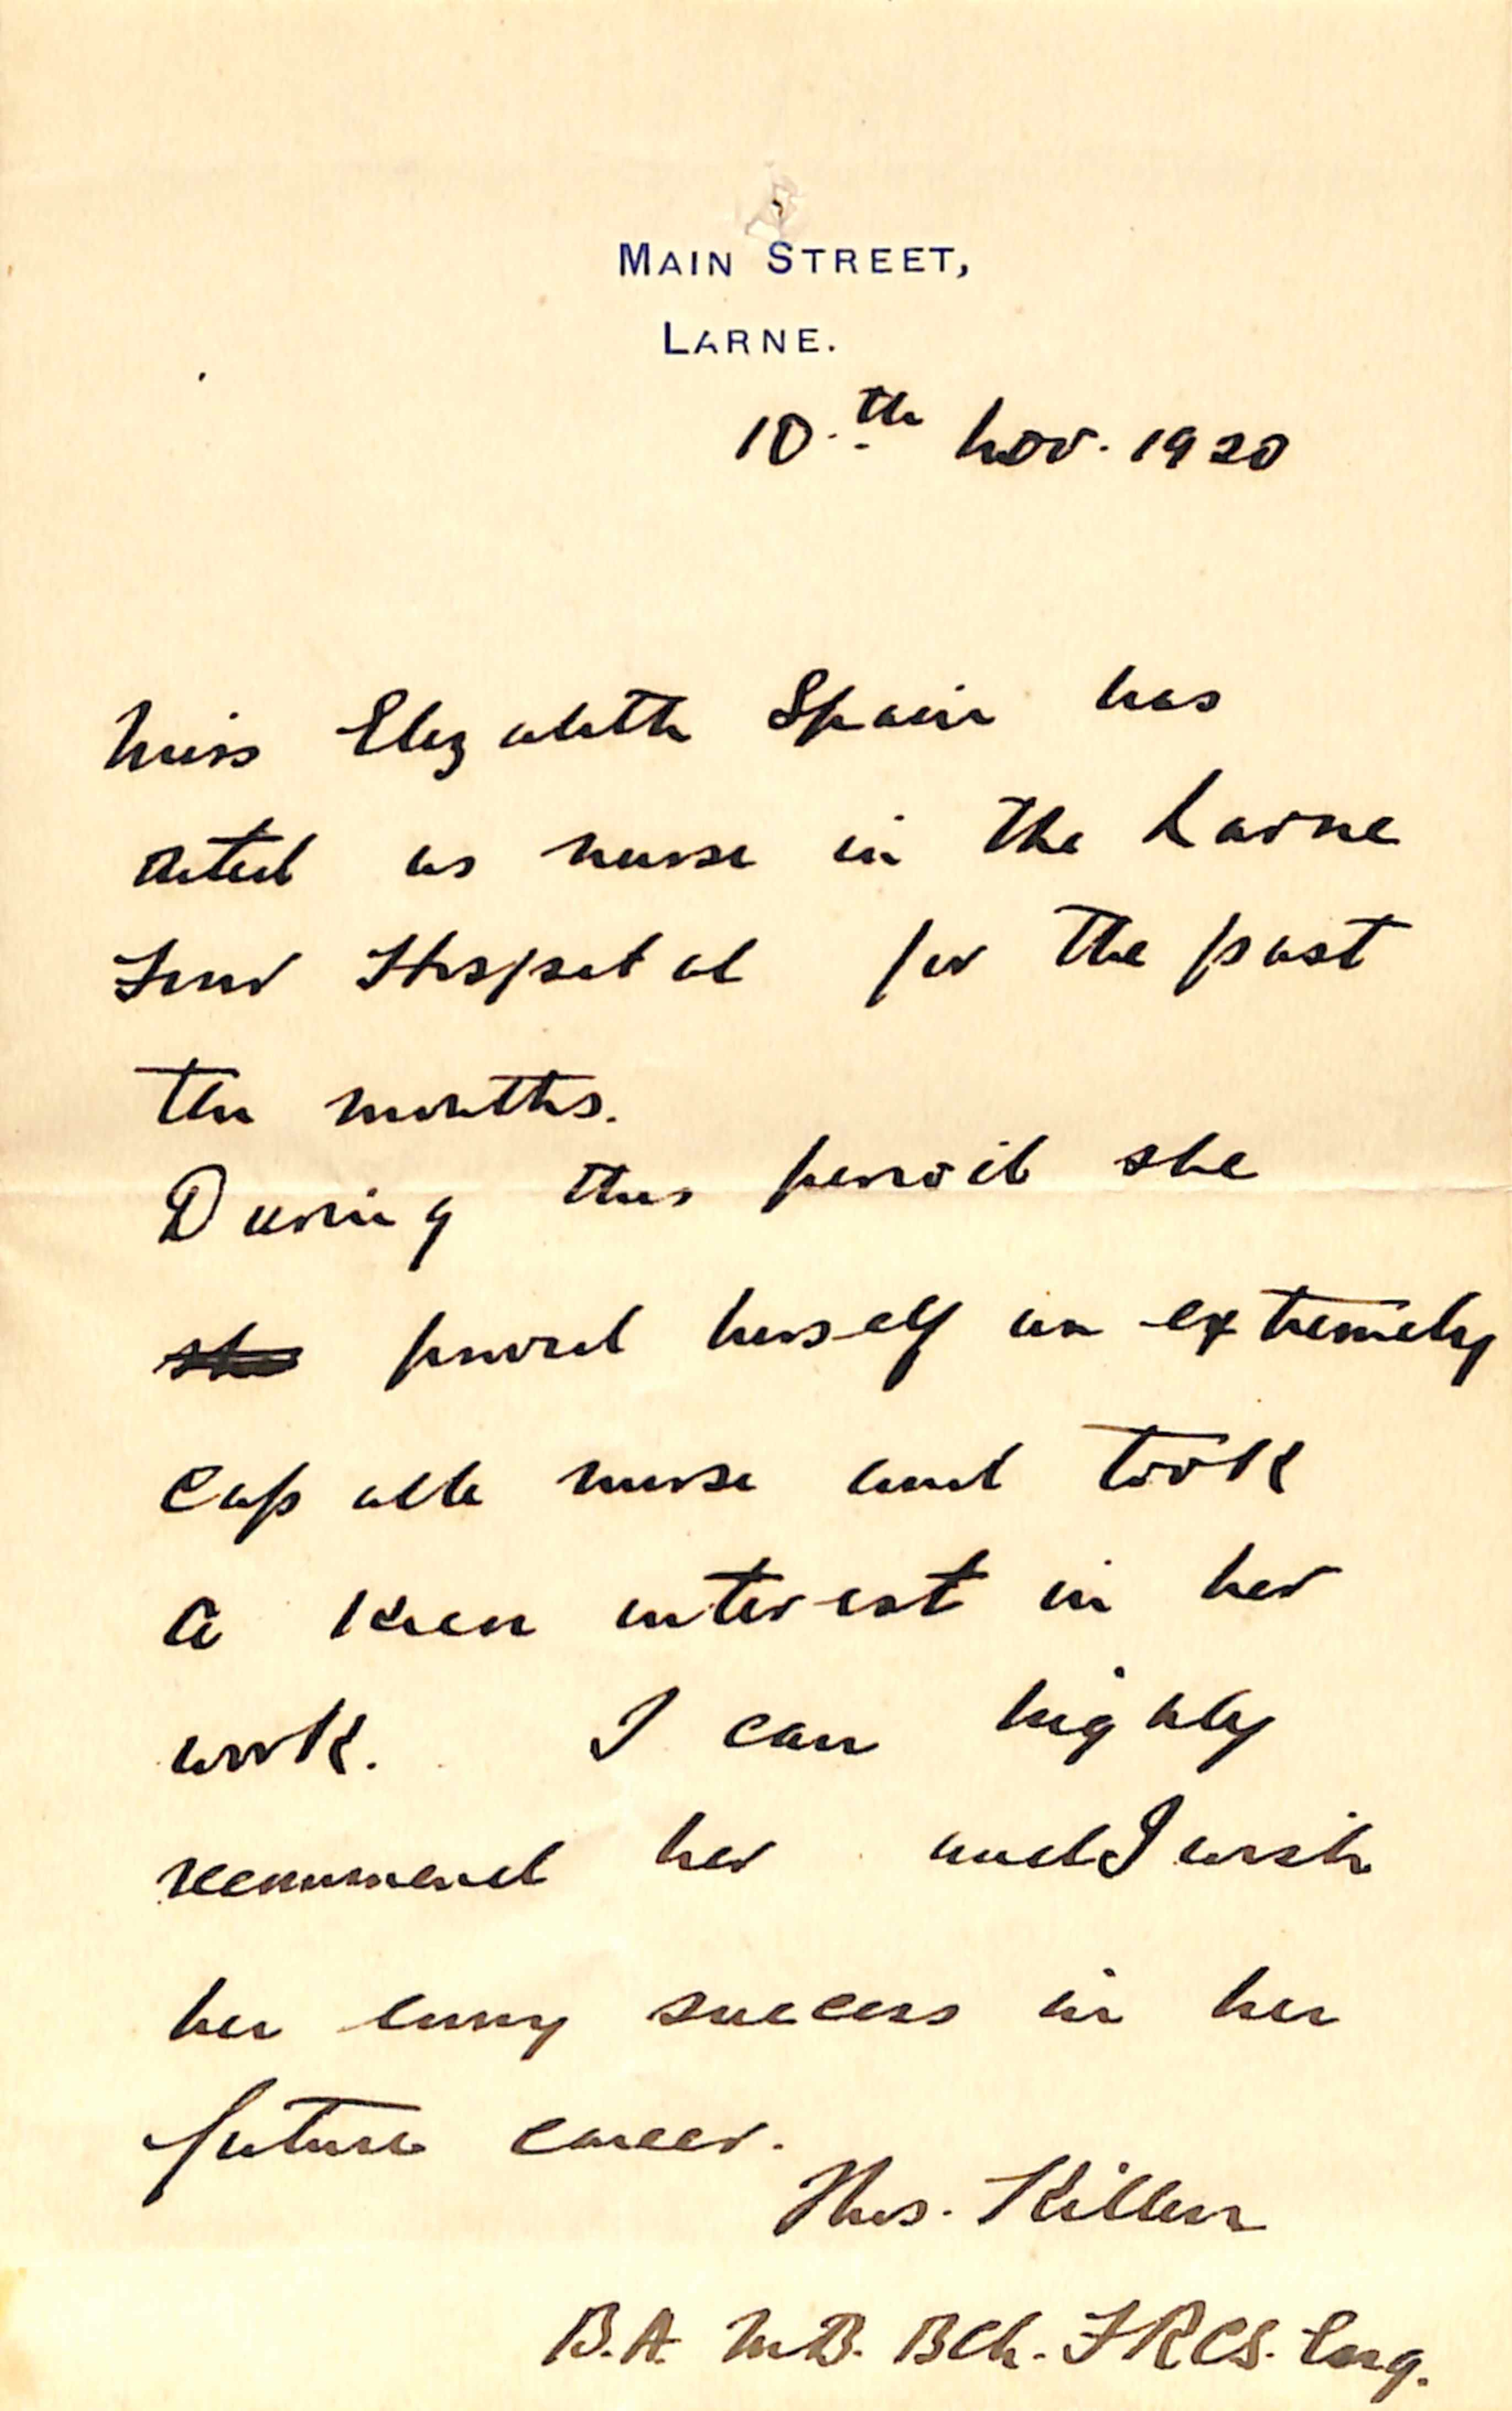 MAIN STREET,
LARNE.
10.th Nov. 1920
Miss Elizabeth Spain has
acted as nurse in the Larne
Fever Hospital for the past
ten months.
During this period she
she proved herself an extremely
capable nurse and took
a keen interest in her
work. I can highly
recommend her and I wish
her every success in her
future career.
Thos. Killen
B.A. M.B. BCh. FRCS. Eng.